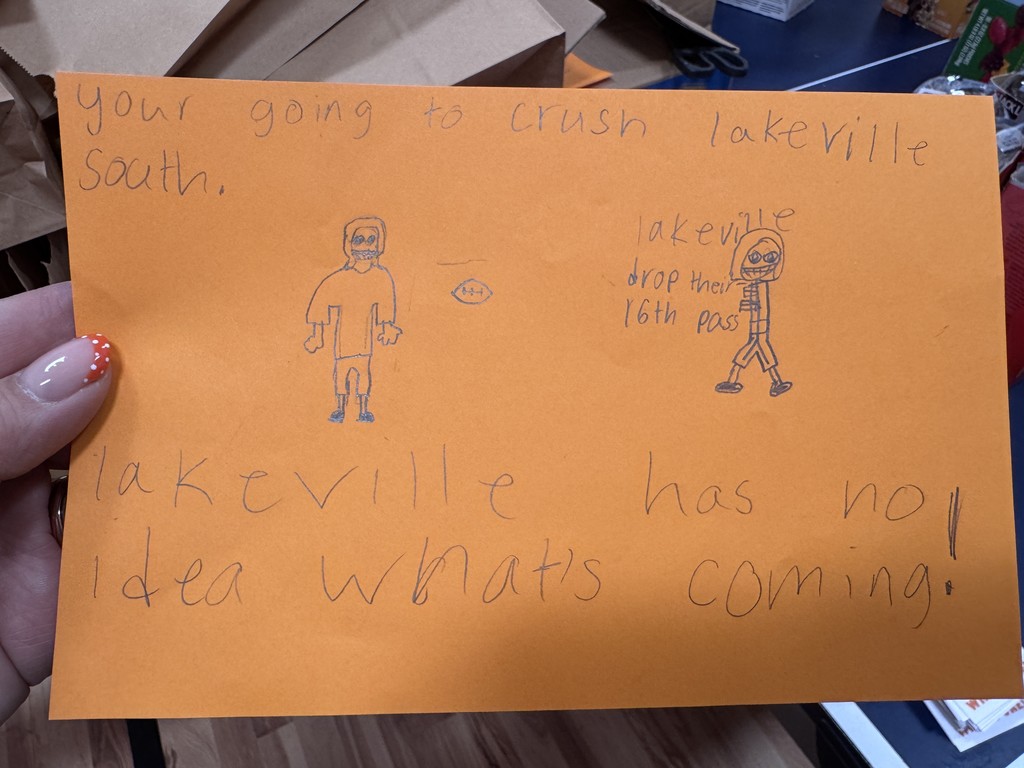 your going to crush lakeville
south.
lakeville
drop their
16th pass
lakeville has no
idea what's coming!